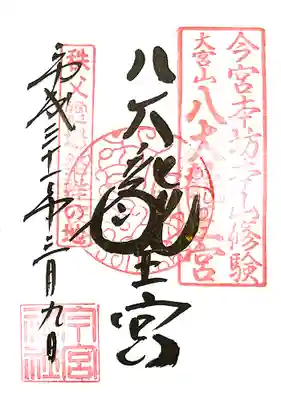 今宮本坊本山修験
大宮山 八大龍王宮
八大龍王宮
秩父霊場発祥の地
平成三十一年三月九日
今宮神社